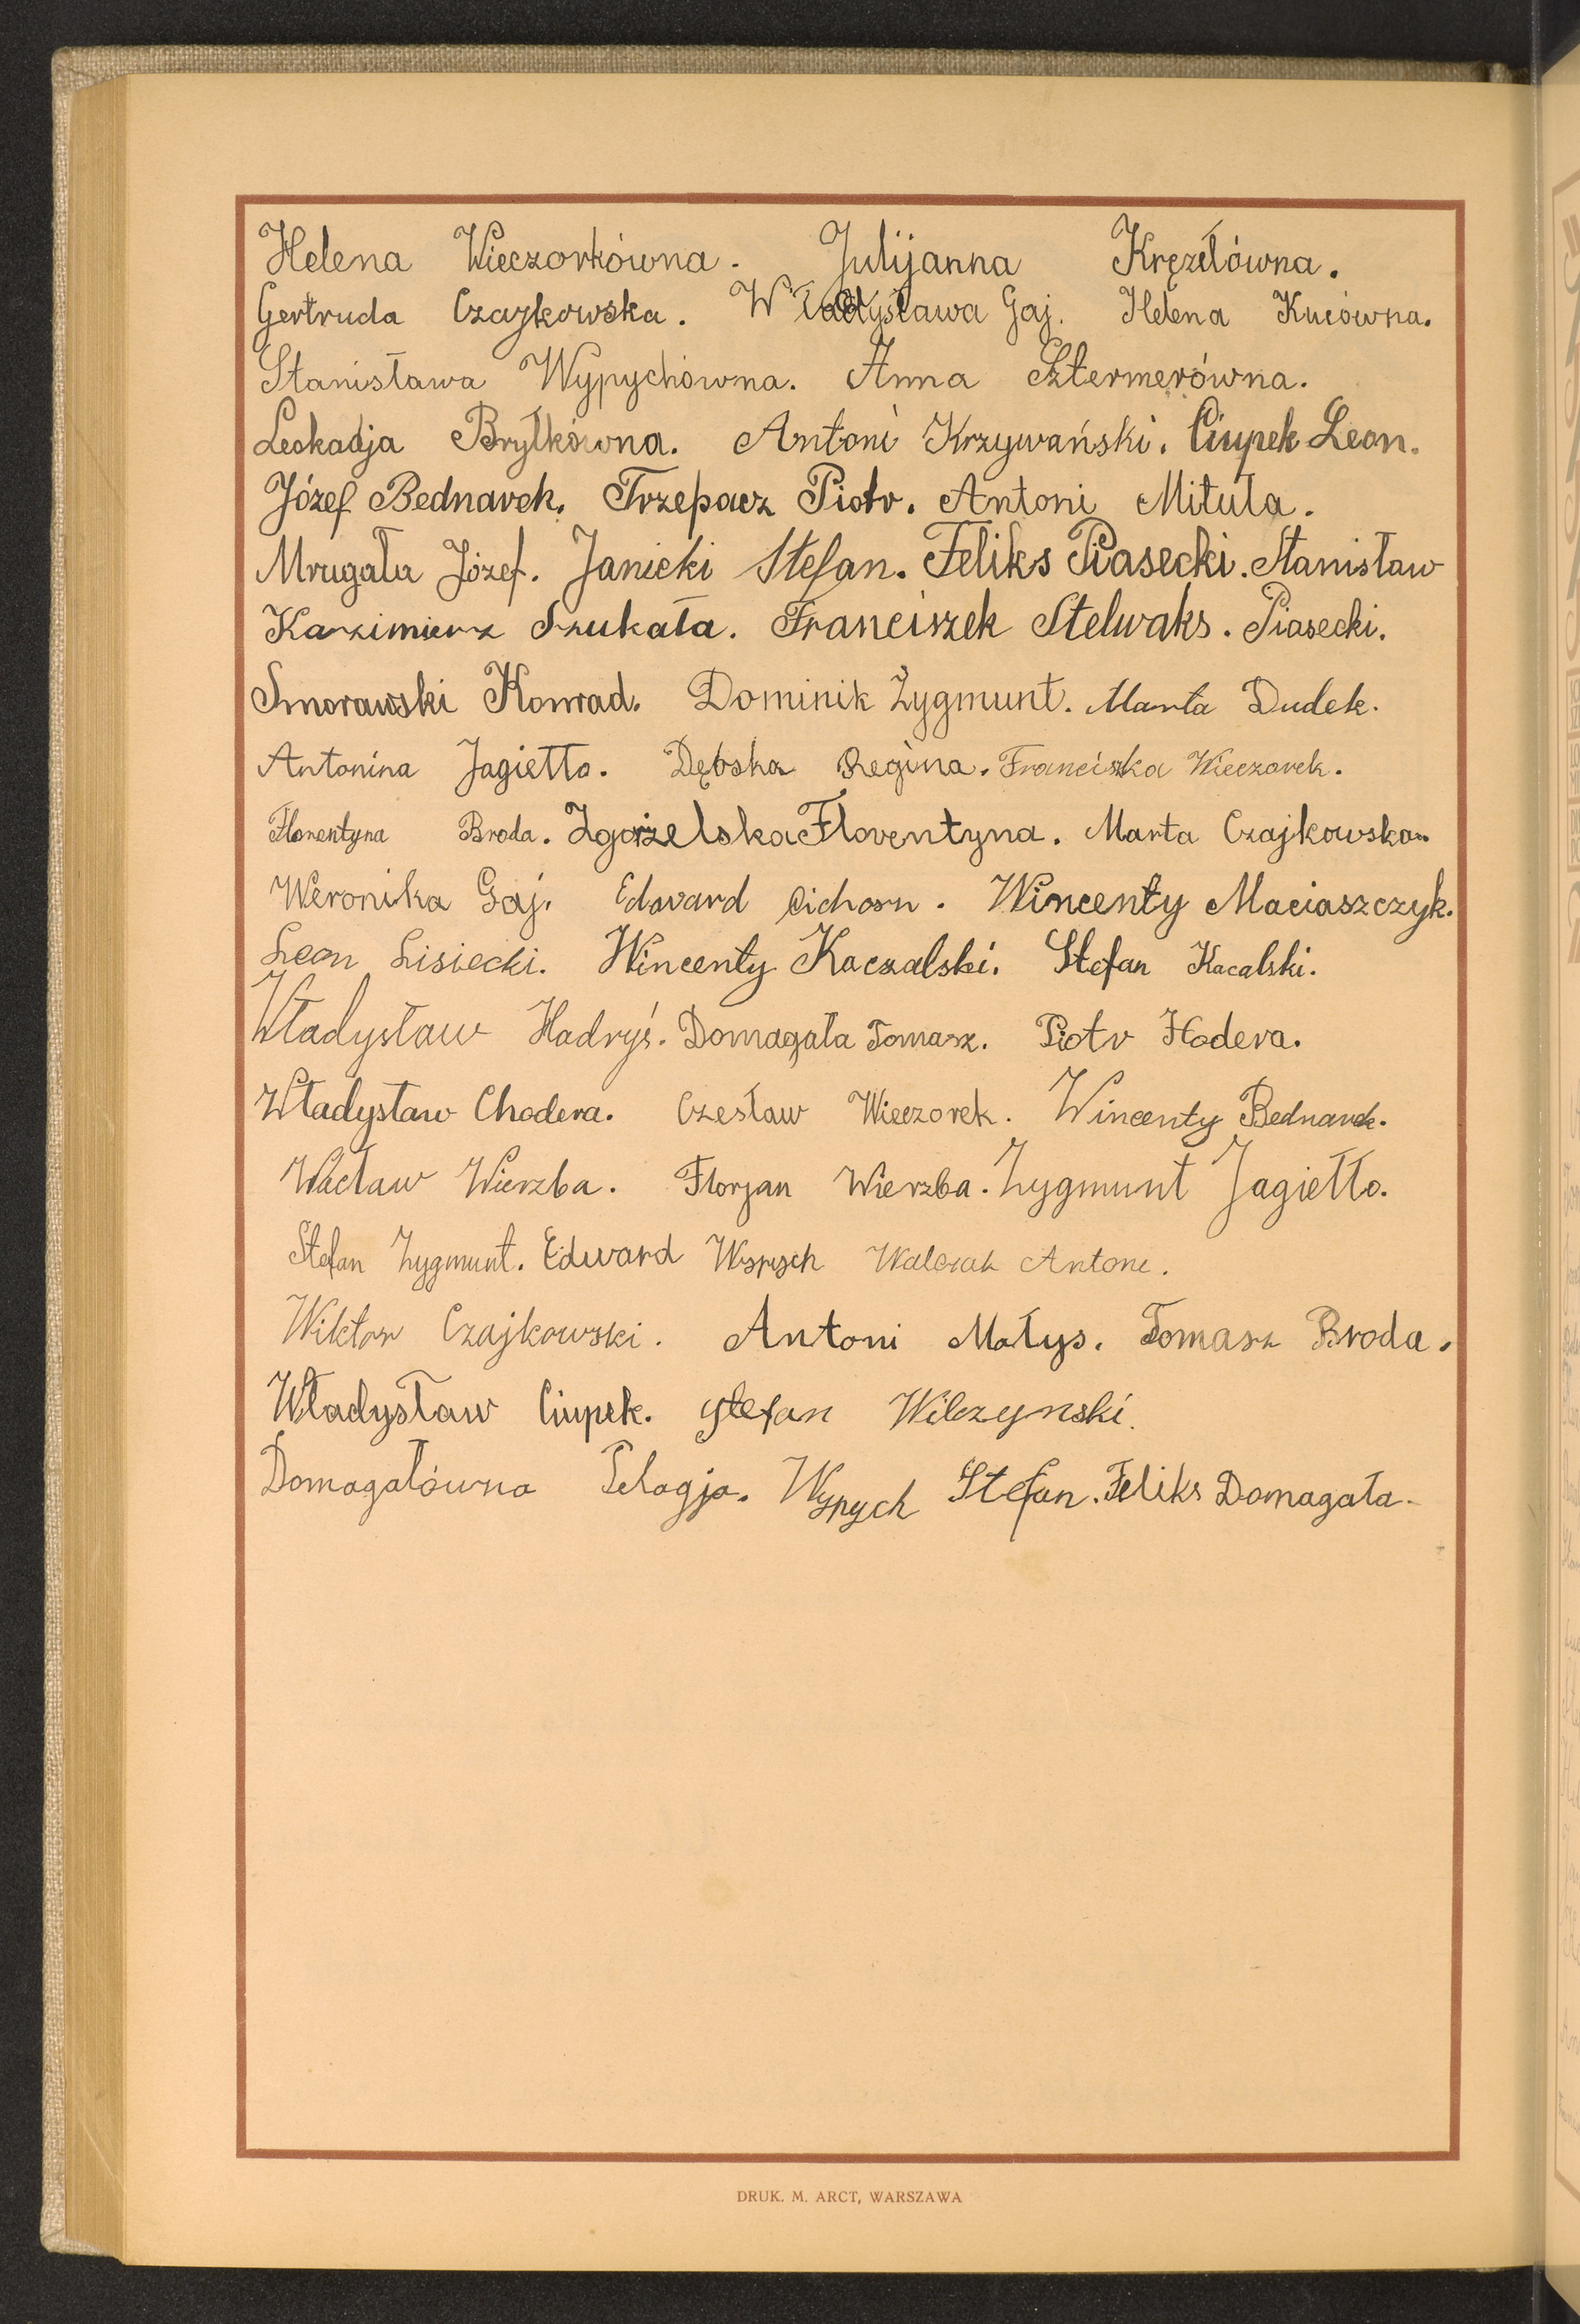 Helena Wieczorkówna. Julijanna Krężełówna.
Gertruda Czajkowska. Władysława Gaj. Helena Kuciówna.
Stanisława Wypychówna. Anna Sztermerówna.
Leokadja Bryłkówna. Antoni Krzywański. Ciupek Leon.
Józef Bednarek. Trzepacz Piotr. Antoni Mituła.
Mrugała Józef. Janicki Stefan. Feliks Piasecki. Stanisław
Kazimierz Szukała. Franciszek Stelwaks. Piasecki.
Smorawski Konrad. Dominik Zygmunt. Marta Dudek.
Antonina Jagiełło. Dębska Regina. Franciszka Wieczorek.
Florentyna Broda. Zgorzelska Florentyna. Marta Czajkowska.
Weronika Gaj. Edward Cichosn. Wincenty Maciaszczyk.
Leon Lisiecki. Wincenty Kaczalski. Stefan Kacalski.
Władysław Hadryś. Domagała Tomasz. Piotr Hodera.
Władysław Chodera. Czesław Wieczorek. Wincenty Bednarek.
Wacław Wierzba. Florjan Wierzba. Zygmunt Jagiełło.
Stefan Zygmunt. Edward Wypych Walczak Antoni.
Wiktor Czajkowski. Antoni Małys. Tomasz Broda.
Władysław Ciupek. Stefan Wilczynski.
Domagałówna Pelagja. Wypych Stefan. Feliks Domagała.
DRUK. M. ARCT, WARSZAWA